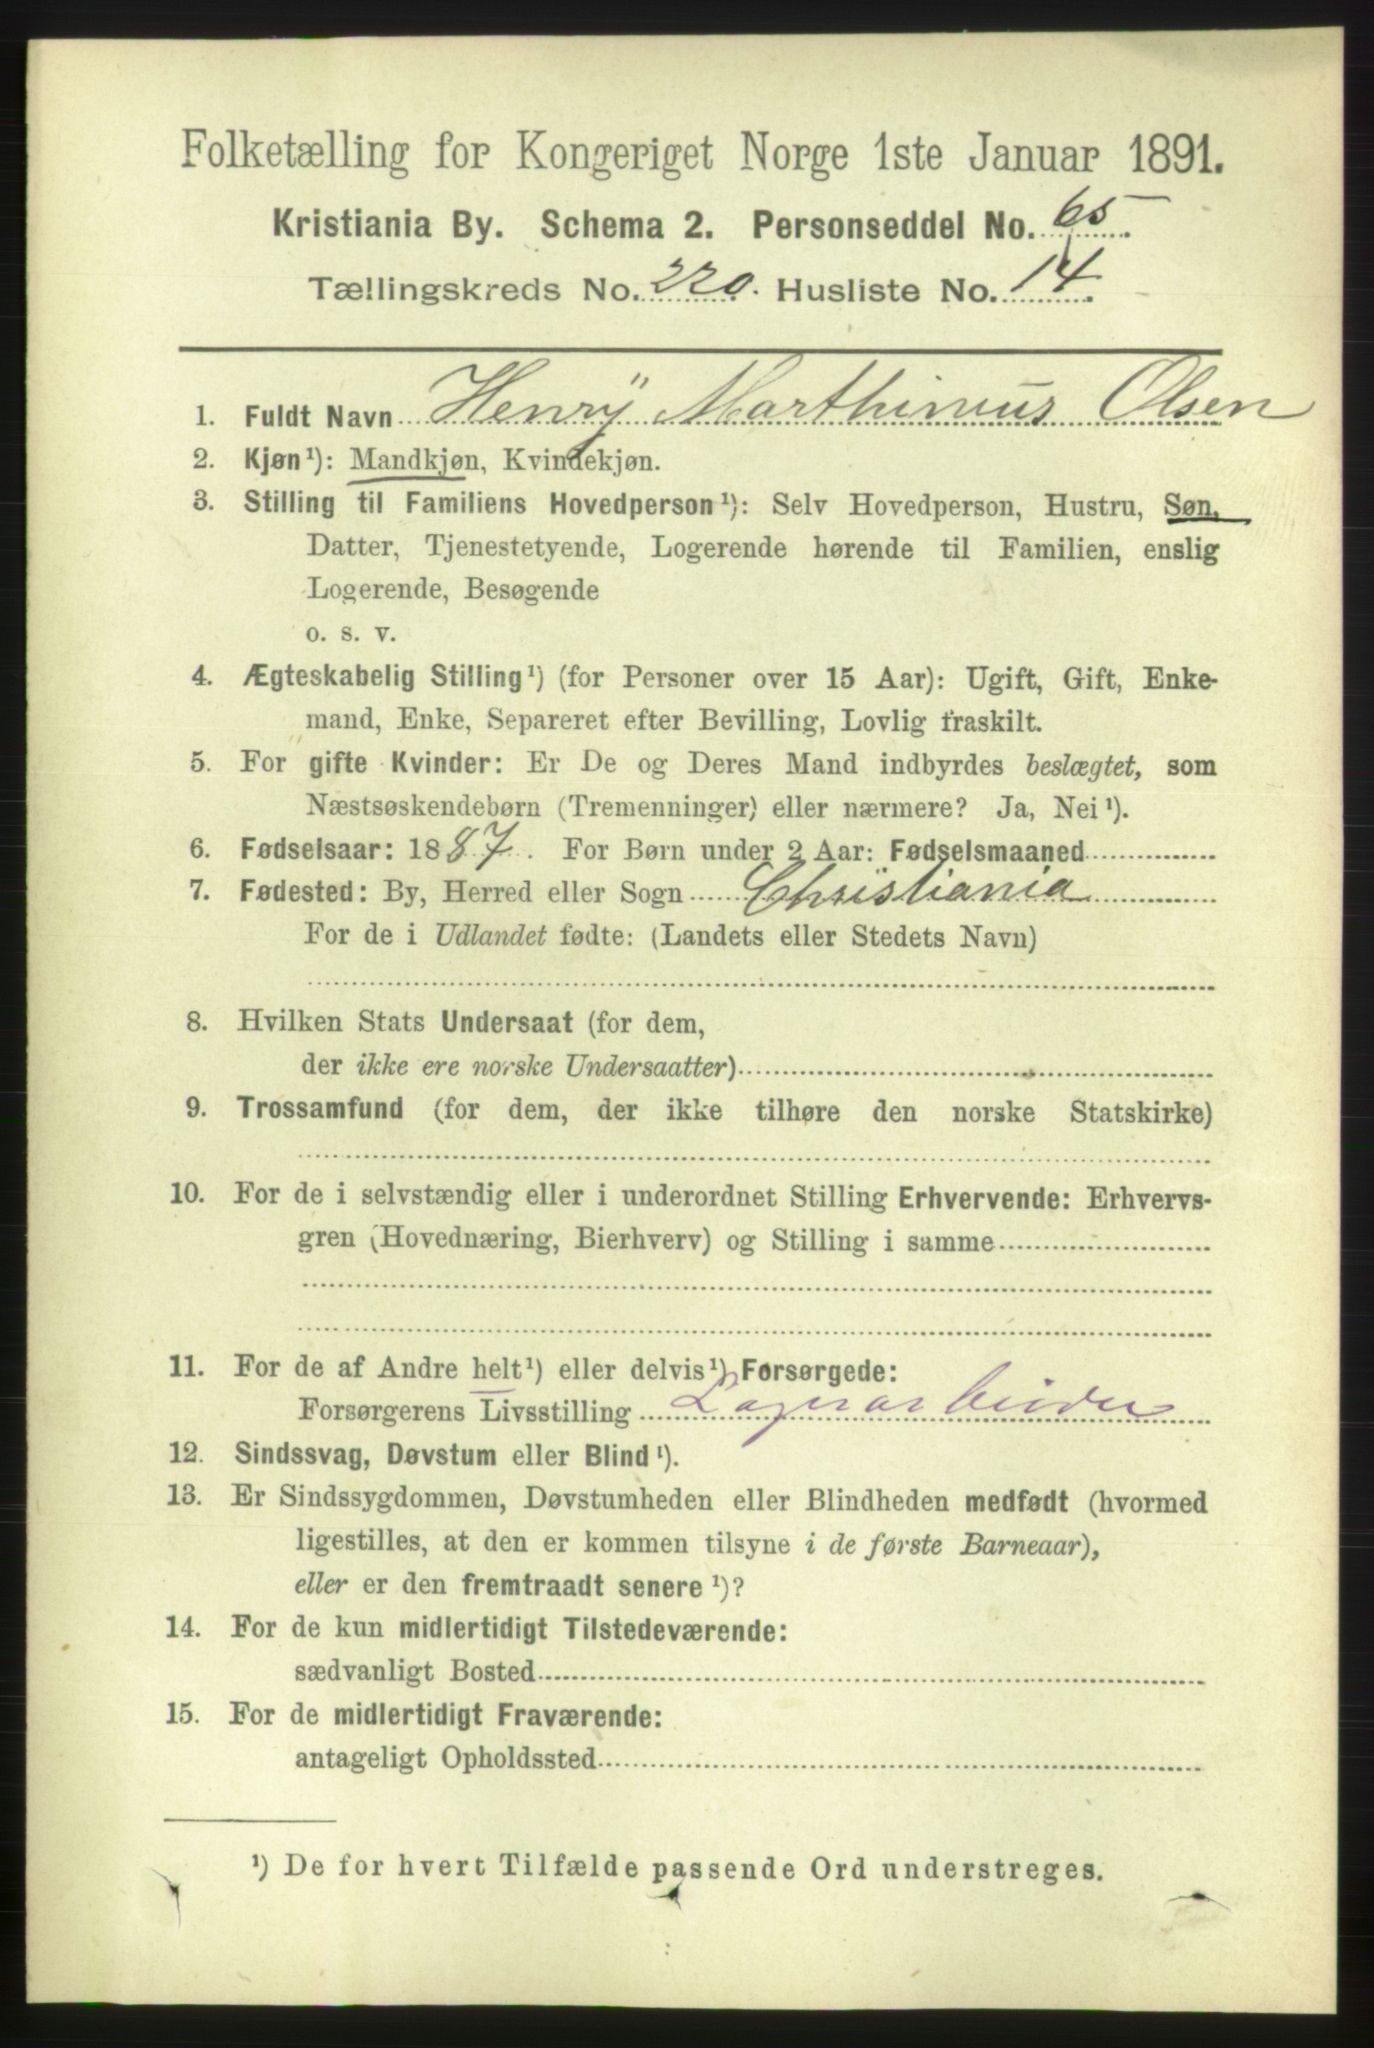 Folketælling for Kongeriget Norge 1ste Januar 1891.
Kristiania By. Schema 2. Personseddel No. 65.
Tællingskreds No. 220. Husliste No. 14.
1. Fuldt Navn Henry Marthinius Olsen
2. Kjøn¹): Mandkjøn, Kvindekjøn.
3. Stilling til Familiens Hovedperson¹): Selv Hovedperson, Hustru, Søn,
Datter, Tjenestetyende, Logerende hørende til Familien, enslig
Logerende, Besøgende
o. s. v.
4. Ægteskabelig Stilling¹) (for Personer over 15 Aar): Ugift, Gift, Enke-
mand, Enke, Separeret efter Bevilling, Lovlig fraskilt.
5. For gifte Kvinder: Er De og Deres Mand indbyrdes beslægtet, som
Næstsøskendebørn (Tremenninger) eller nærmere? Ja, Nei¹).
6. Fødselsaar: 1887. For Børn under 2 Aar: Fødselsmaaned
7. Fødested: By, Herred eller Sogn Christiania
For de i Udlandet fødte: (Landets eller Stedets Navn)
8. Hvilken Stats Undersaat (for dem,
der ikke ere norske Undersaatter)
9. Trossamfund (for dem, der ikke tilhøre den norske Statskirke)
10. For de i selvstændig eller i underordnet Stilling Erhvervende: Erhvervs-
gren (Hovednæring, Bierhverv) og Stilling i samme
11. For de af Andre helt¹) eller delvis¹) Forsørgede:
Forsørgerens Livsstilling Lagerarbeider
12. Sindssvag, Døvstum eller Blind¹).
13. Er Sindssygdommen, Døvstumheden eller Blindheden medfødt (hvormed
ligestilles, at den er kommen tilsyne i de første Barneaar),
eller er den fremtraadt senere¹)?
14. For de kun midlertidigt Tilstedeværende:
sædvanligt Bosted
15. For de midlertidigt Fraværende:
antageligt Opholdssted
¹) De for hvert Tilfælde passende Ord understreges.